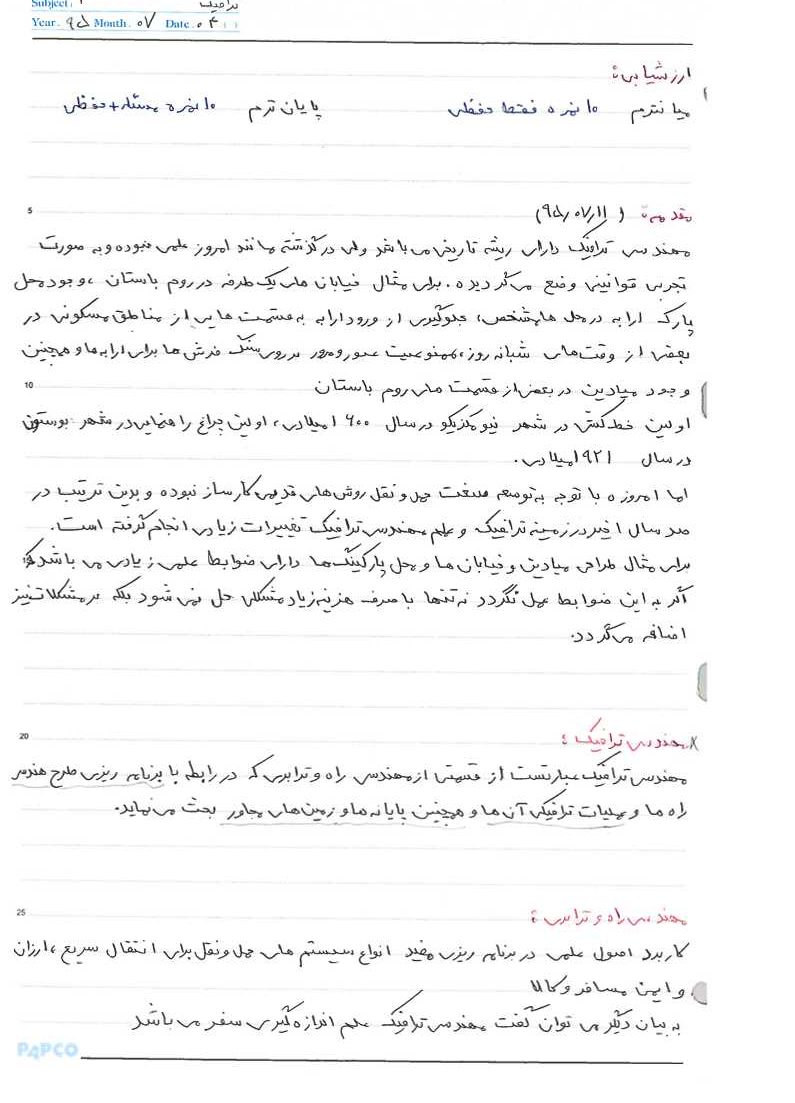 Subject: ترافیک
Year. ۹۵ Month. ۰۷ Date. ۰۴
ارزشیابی:
میانترم ۱۰ نمره فقط حفظی پایان ترم ۱۰ نمره مسئله+حفظی
5
مقدمه: (۹۵٫۰۷٫۱۱)
مهندسی ترافیک دارای ریشه تاریخی می باشد ولی در گذشته مانند امروز علمی نبوده و به صورت
تجربی قوانینی وضع می گردیده. برای مثال خیابان های یک طرفه در روم باستان ، وجود محل
پارک ارابه در محل های مشخص، جلوگیری از ورود ارابه به قسمت هایی از مناطق مسکونی در
بعضی از وقت های شبانه روز، ممنوعیت عبور و مرور بر روی سنگ فرش ها برای ارابه ها و همچنین
10
وجود میادین در بعضی از قسمت های روم باستان
اولین خط کشی در شهر نیو مکزیکو در سال ۱۶۰۰ میلادی، اولین چراغ راهنمایی در شهر بوستون
در سال ۱۹۲۱ میلادی.
اما امروزه با توجه به توسعه صنعت حمل و نقل روش های قدیمی کارساز نبوده و بدین ترتیب در
صد سال اخیر در زمینه ترافیک و علم مهندسی ترافیک تغییرات زیادی انجام گرفته است.
برای مثال طراحی میادین و خیابان ها و محل پارکینگ ها دارای ضوابط علمی زیادی می باشد که
اگر به این ضوابط عمل نگردد نه تنها با صرف هزینه زیاد مشکلی حل نمی شود بلکه بر مشکلات نیز
اضافه می گردد.
20
مهندسی ترافیک:
مهندسی ترافیک عبارتست از قسمتی از مهندسی راه و ترابری که در رابطه با برنامه ریزی طرح هندسی
راه ها و عملیات ترافیکی آن ها و همچنین پایانه ها و زمین های مجاور بحث می نماید.
25
مهندسی راه و ترابری:
کاربرد اصول علمی در برنامه ریزی مفید انواع سیستم های حمل و نقل برای انتقال سریع ، ارزان
و ایمن مسافر و کالا
به بیان دیگر می توان گفت مهندسی ترافیک علم اندازه گیری سفر می باشد
PAPCO